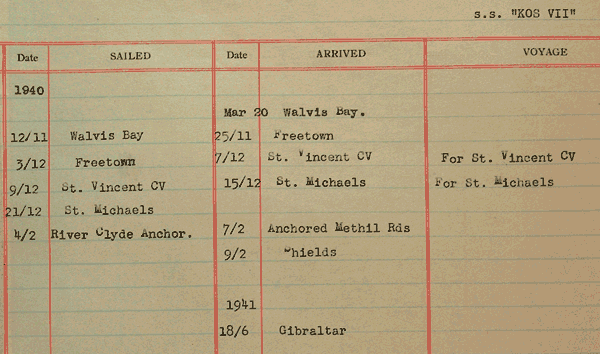 s.s. "KOS VII"
Date SAILED Date ARRIVED VOYAGE
1940
Mar 20 Walvis Bay.
12/11 Walvis Bay 25/11 Freetown
3/12 Freetown 7/12 St. Vincent CV For St. Vincent CV
9/12 St. Vincent CV 15/12 St. Michaels For St. Michaels
21/12 St. Michaels
4/2 River Clyde Anchor. 7/2 Anchored Methil Rds
9/2 Shields
1941
18/6 Gibraltar